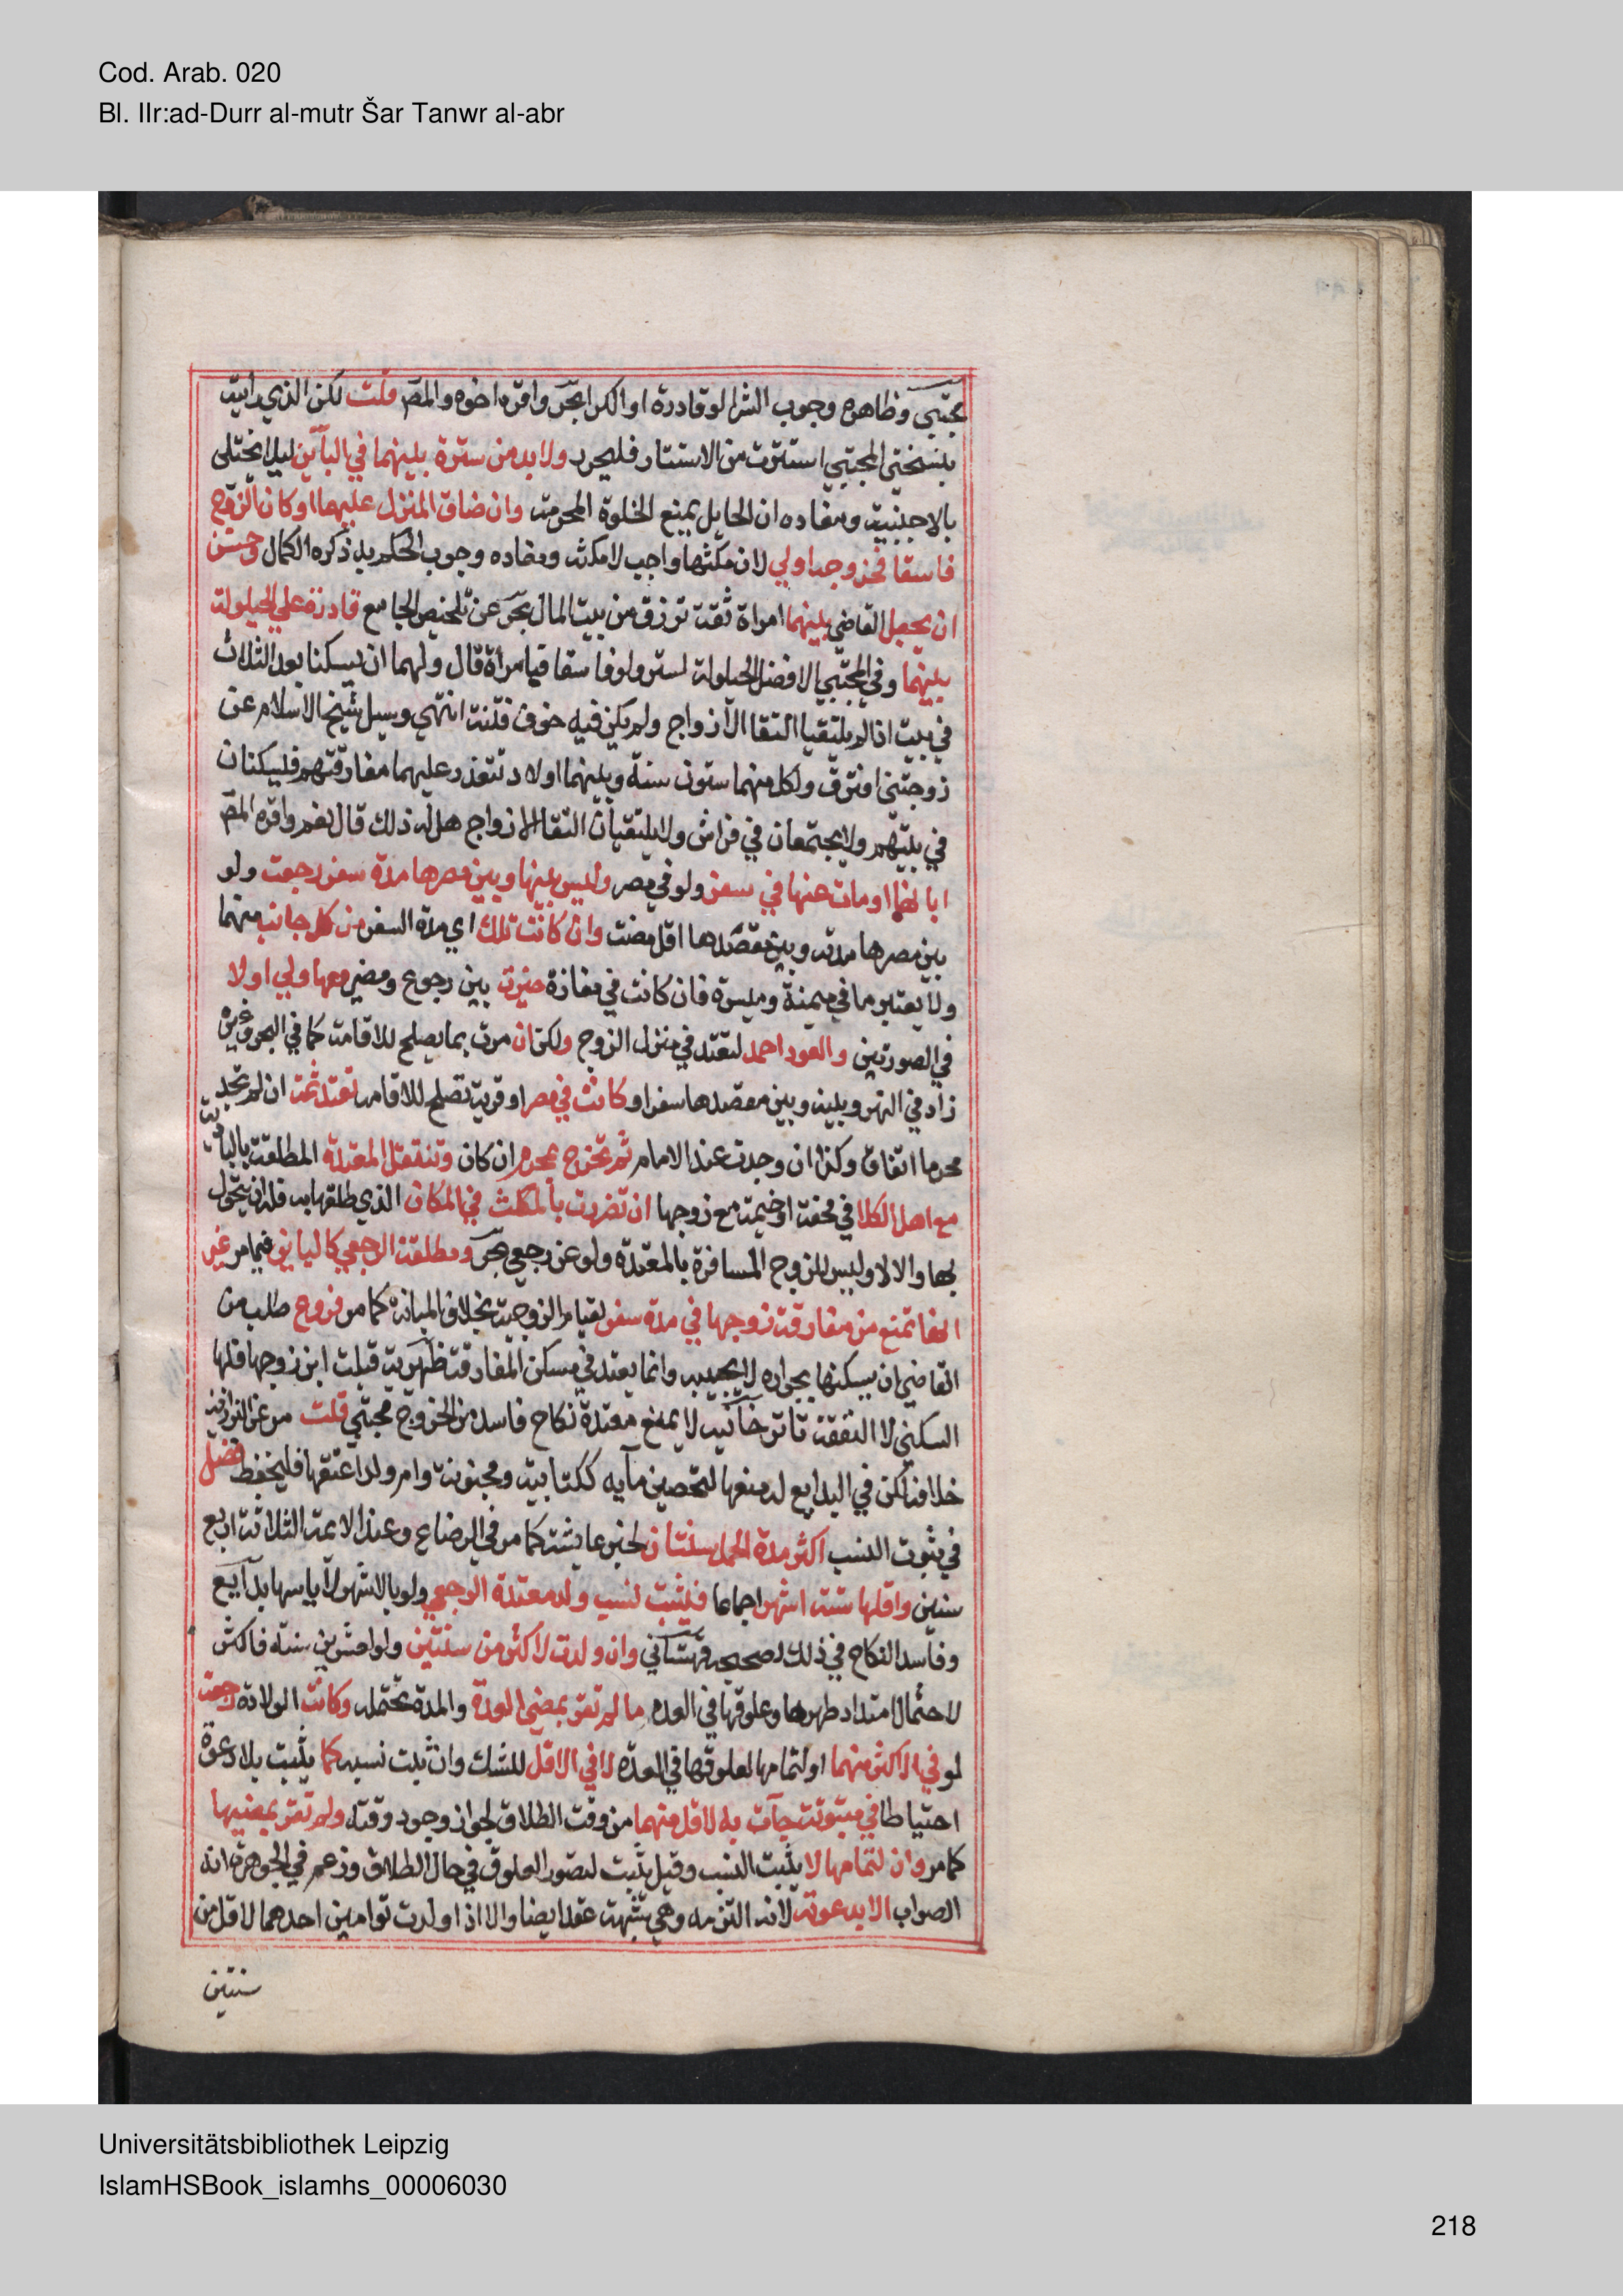 Cod. Arab. 020
Bl. IIr:ad-Durr al-mutr Šar Tanwr al-abr
مجتبى وظاهره وجوب الشرا لو قادرة او الكرا بحر واقره اخوه والمص قلت لكن الذي رايته
بنسختي المجتبى استترت من الاستتار فليحرر ولا بد من سترة بينهما في الباين ليلا يختلى
بالاجنبية ومفاده ان الحايل يمنع الخلوة المحرمة وان ضاق المنزل عليهما او كان الزوج
فاسقا فخروجه اولي لان مكثها واجب لا مكثه ومفاده وجوب الحكم به ذكره الكمال وحسن
ان يجعل القاضي بينهما امراة ثقة ترزق من بيت المال بحر عن تلخيص الجامع قادرة علي الحيلولة
بينهما وفي المجتبى الافضل الحيلولة لستر ولو فاسقا فبامرأة قال ولهما ان يسكنا بعد الثلاث
في بيت اذا لم يلتقيا التقا الازواج ولم يكن فيه خوف فتنة انتهي وسيل شيخ الاسلام عن
زوجتى افترق ولكل منهما ستون سنة وبينهما اولاد تتعذر عليهما مفارقتهم فليسكنان
في بيتهم ولا يجتمعان في فراش ولا يلتقيان التقا الازواج هل له ذلك قال نعم واقره المص
ابانها او مات عنها في سفر ولو في مصر وليس بينها وبين مصرها مدة سفر رجعت ولو
بين مصرها مدته وبين مقصدها اقل مضت وان كانت تلك اي مدة السفر من كل جانب منهما
ولا يعتبر ما في ميمنة وميسرة فان كانت في مفازة خيرت بين رجوع ومضي معها ولي او لا
في الصورتين والعود احمد لتعتد في منزل الزوج ولكن ان مرت بما يصلح للاقامة كما في البحر وغيره
زاد في النهر وبينه وبين مقصدها سفر او كانت في مصر او قرية تصلح للاقامة تعتد ثمة ان لم تجد
محرما اتفاق وكذا ان وجدت عند الامام ثم تخرج بمحرم ان كان وتنتقل المعتدة المطلقة بالبادية
مع اهل الكلا في محفة او خيمة مع زوجها ان تضررت بالمكث في المكان الذي طلقها به فله ان يتحول
بها والا لا وليس للزوج المسافرة بالمعتدة ولو عن رجعي بحر ومطلقة الرجعي كالباين فيما مر غير
انها تمنع من مفارقة زوجها في مدة سفر لقيام الزوجية بخلاف المبانة كما مر فروع طلب من
القاضي ان يسكنها بجواره لا يجيبه وانما يعتد في مسكن المفارقة ظهيرية قبلت ابن زوجها فلها
السكنى لا النفقة تاترخانيه لا يمنع معتدة نكاح فاسد من الخروج مجتبى قلت مر عن البزازية
خلافه لكن في البدايع له منعها لتحصين مآيه ككتابية ومجنونة وام ولد اعتقها فليحفظ فصل
في ثبوت النسب اكثر مدة الحمل سنتان لخبر عايشة كما مر في الرضاع وعند الايمة الثلاثة اربع
سنين واقلها ستة اشهر اجماعا فيثبت نسب ولد معتدة الرجعي ولو بالاشهر لأياسها بدآيع
وفاسد النكاح في ذلك كصحيحه قهستاني وان ولدت لاكثر من سنتين ولو لعشرين سنه فاكثر
لاحتمال امتداد طهرها وعلوقها في العدة ما لم تقر بمضي العدة والمدة تحتمله وكانت الولادة رجعة
لو في الاكثر منهما او لتمامها لعلوقها في العدة لا في الاقل للشك وان ثبت نسبه كما يثبت بلا دعوة
احتياطا في مبتوتة جآت به لاقل منهما من وقت الطلاق لجواز وجوده وقته ولم تقر بمضيها
كما مر وان لتمامها لا يثبت النسب وقيل يثبت لتصور العلوق في حال الطلاق وزعم في الجوهرة انه
الصواب الا بدعوته لانه التزمه وهي شبهة عقد ايضا والا اذا ولدت توامين احدهما لاقل من
سنتين
Universitätsbibliothek Leipzig
IslamHSBook_islamhs_00006030
218